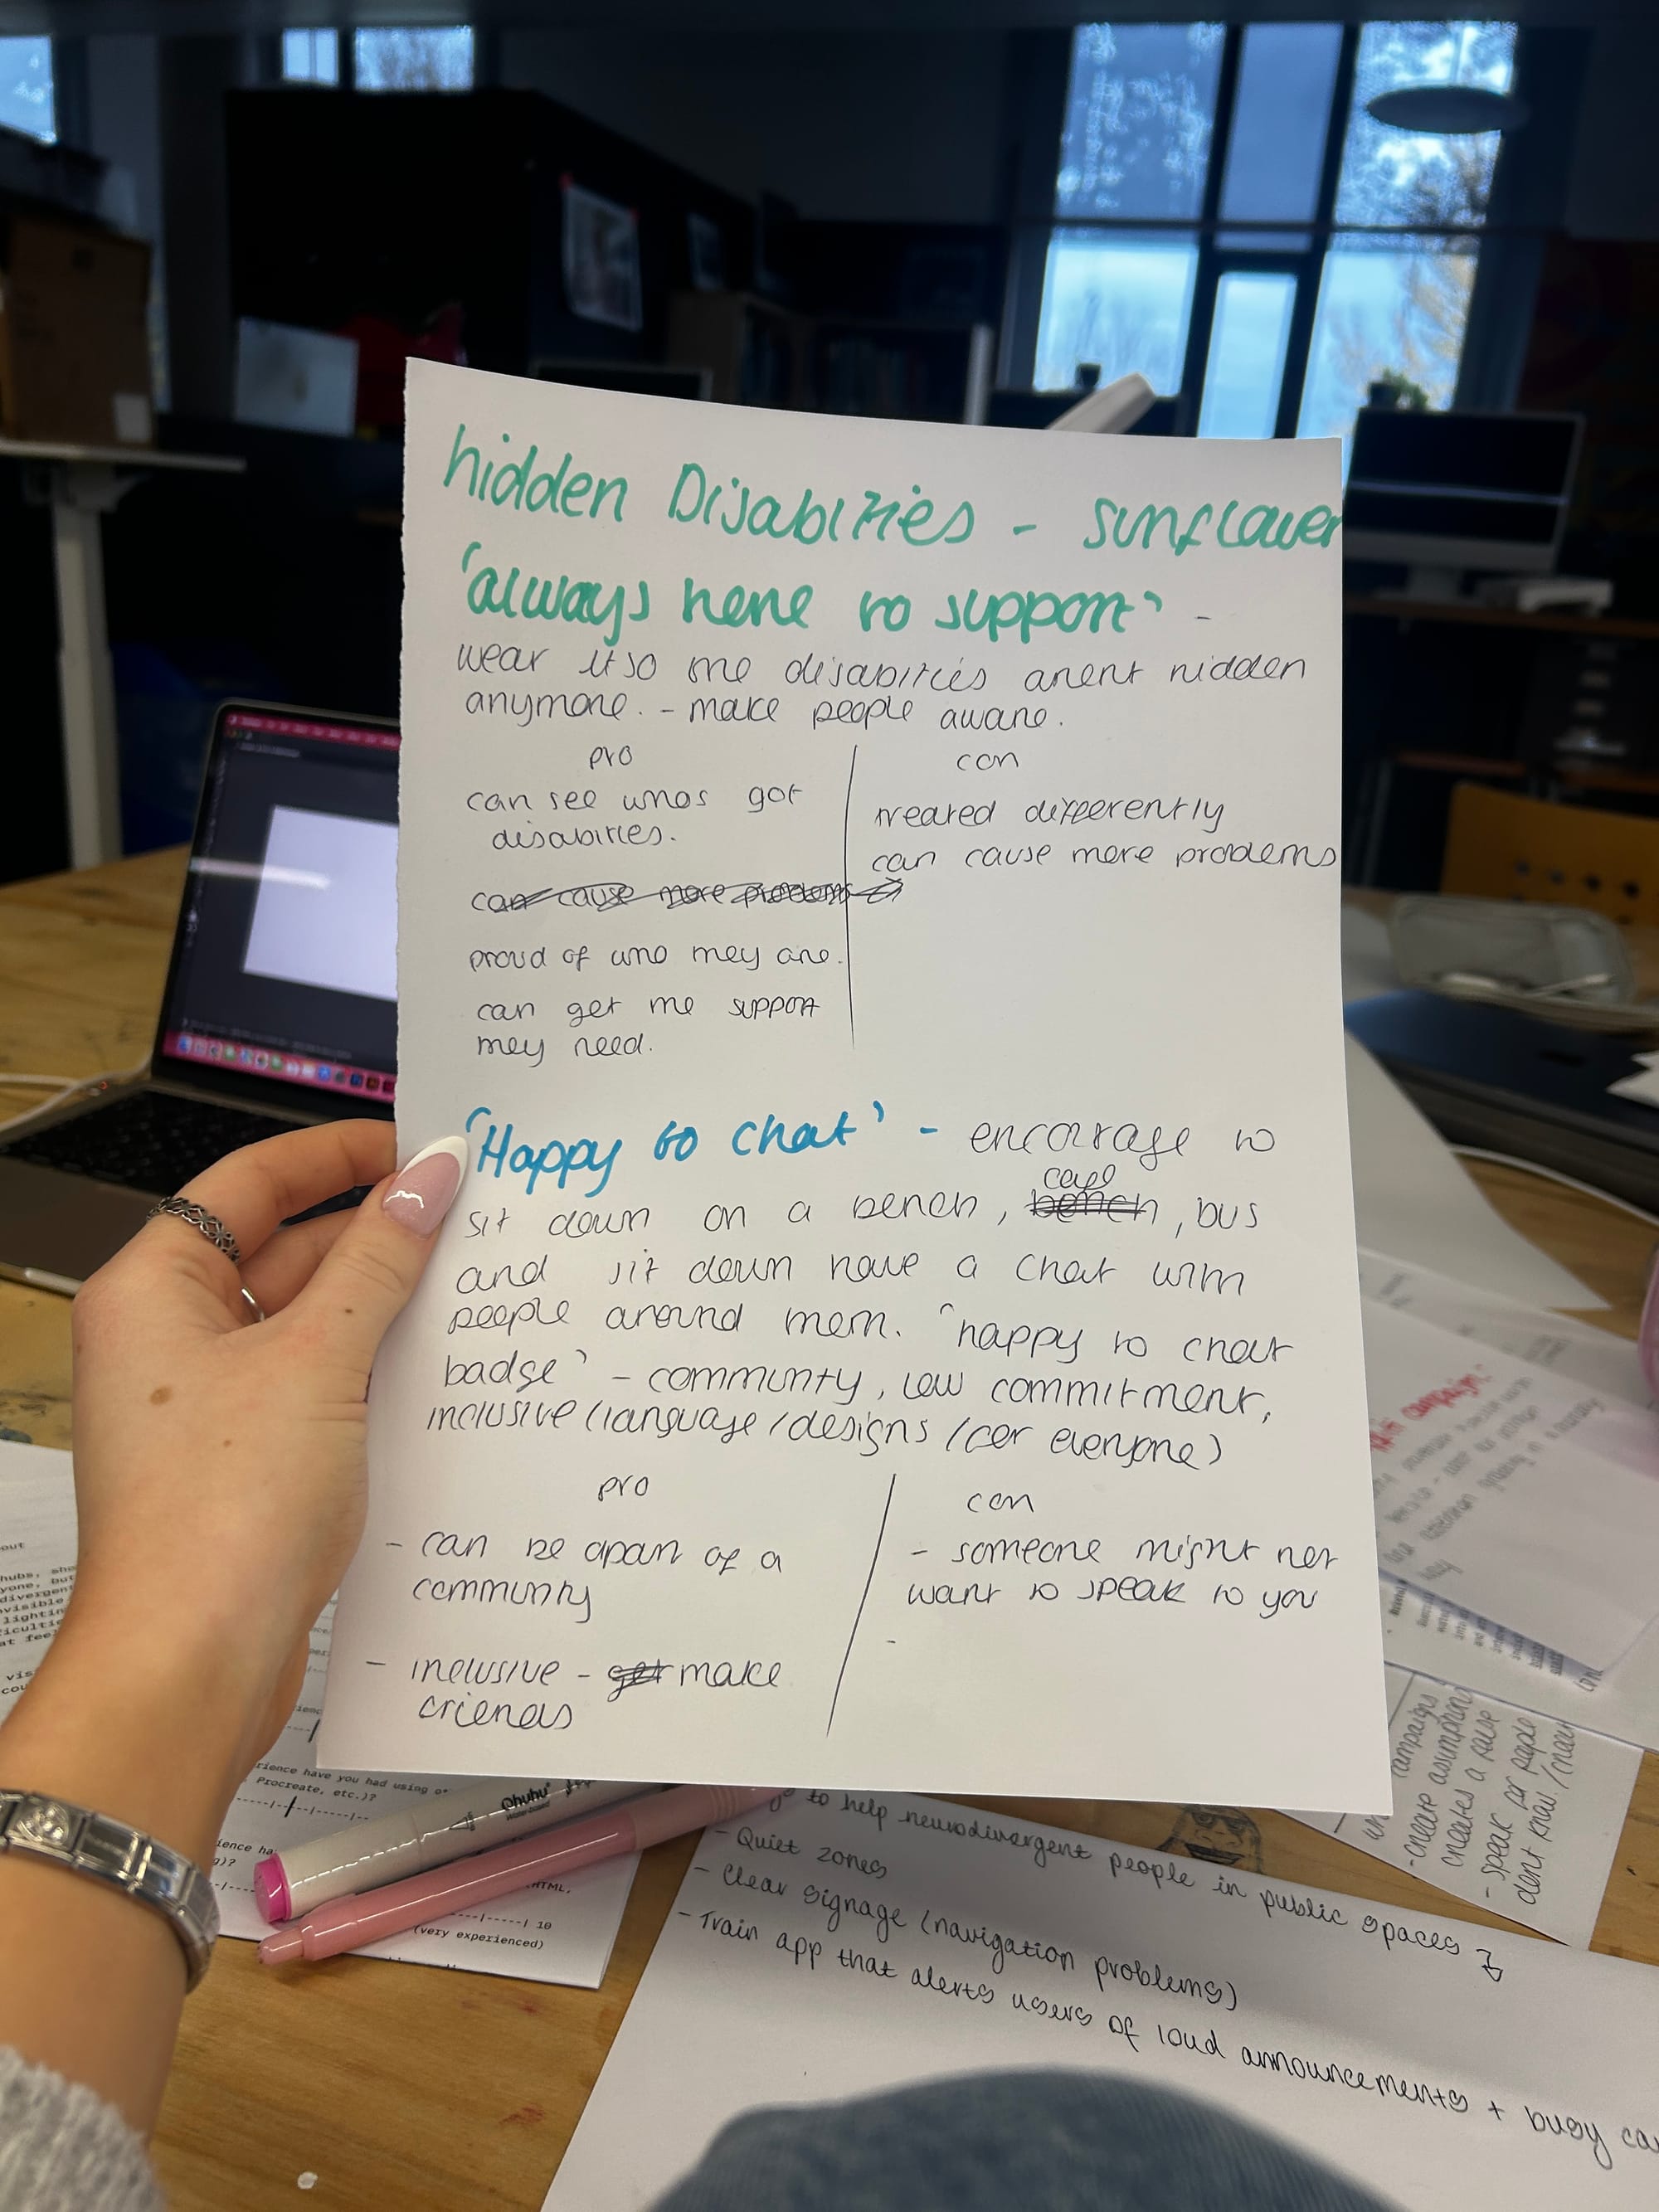 hidden Disabilities - sunflower
'always here to support' -
wear it so the disabilities arent hidden
anymore. - make people aware.
pro
can see whos got
disabilities.
can cause more problems
proud of who they are.
can get the support
they need.
con
treated differently
can cause more problems
'Happy to chat' - encourage to
cafe
sit down on a bench, bench, bus
and sit down have a chat with
people around them. 'happy to chat
badge' - community, low commitment,
inclusive (language / designs / for everyone)
pro
- can be apart of a
community
- inclusive - get make
friends
con
- someone might not
want to speak to you
-
to help neurodivergent people in public spaces
- Quiet zones
- Clear signage (navigation problems)
- Train app that alerts users of loud announcements + busy
campaigns
- create
creates a false
- speak for people
dont know /
campaign
Ohuhu
hubs,
lighting
rience have you had using
Procreate, etc.)?
HTML,
10
(very experienced)